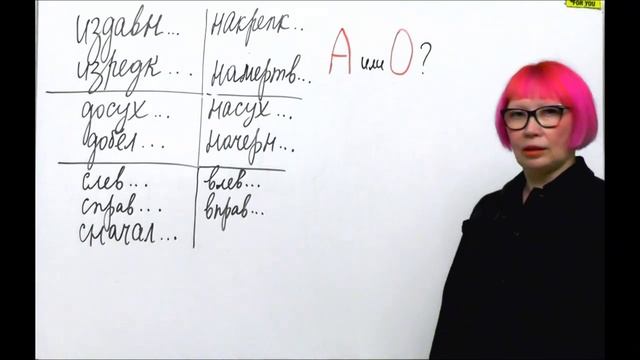 *FOR YOU
издавн... накрепк..
изредк... намертв...
А или О?
досух... насух...
добел... начерн...
слев... влев...
справ... вправ...
сначал...